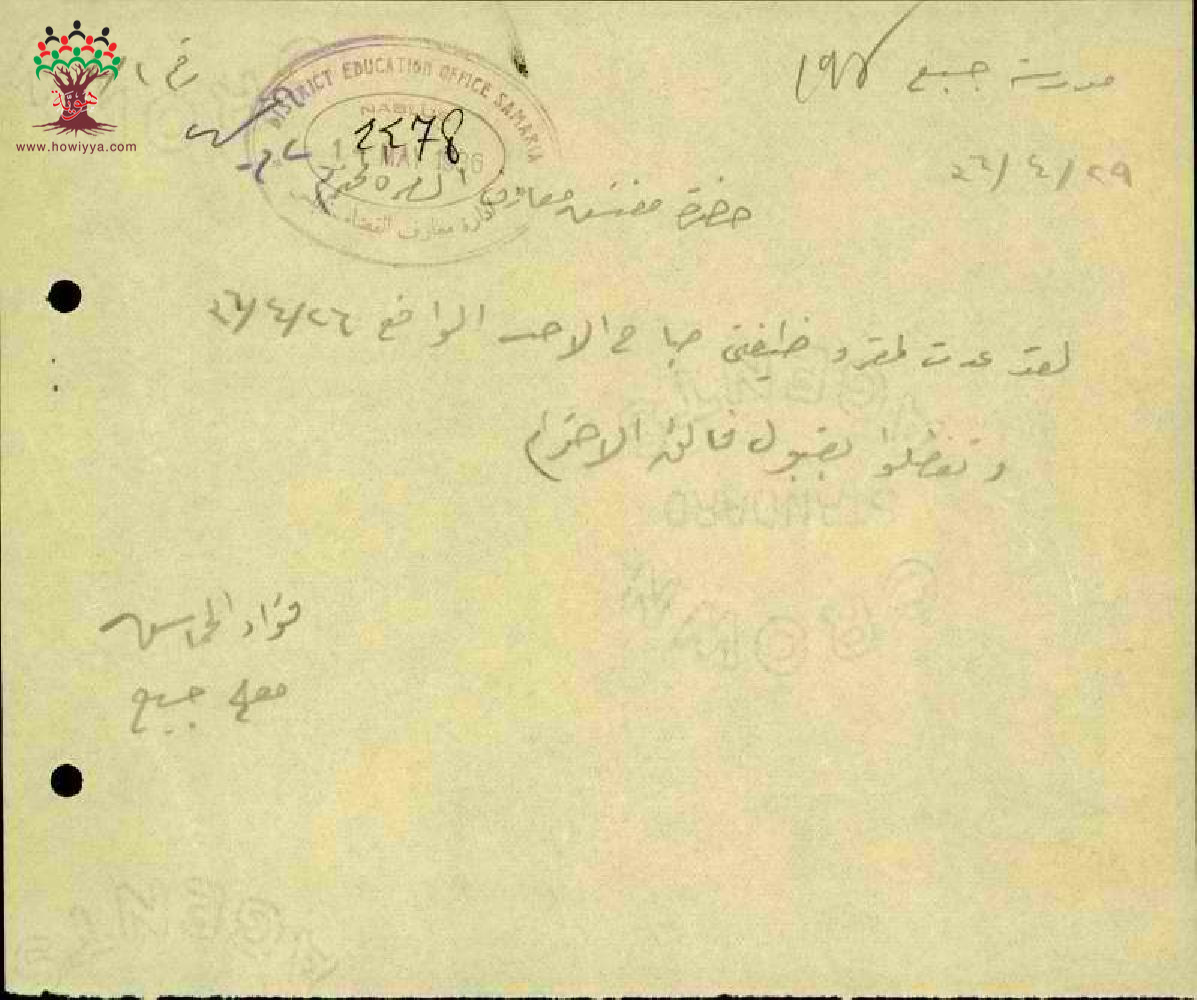 مدرسة جبع
٢٩/٤/٣٦
رقم
DISTRICT EDUCATION OFFICE SAMARIA
NABLUS
11 MAY 1936
2278
ادارة معارف القضاء
حضرة مفتش معارف اللواء المحترم
لقد عدت لمقر وظيفتي صباح الاحد الواقع ٢٦/٤/٣٦
وتفضلوا بقبول فائق الاحترام
فؤاد
معلم جبع
هوية
www.howiyya.com
STANDARD